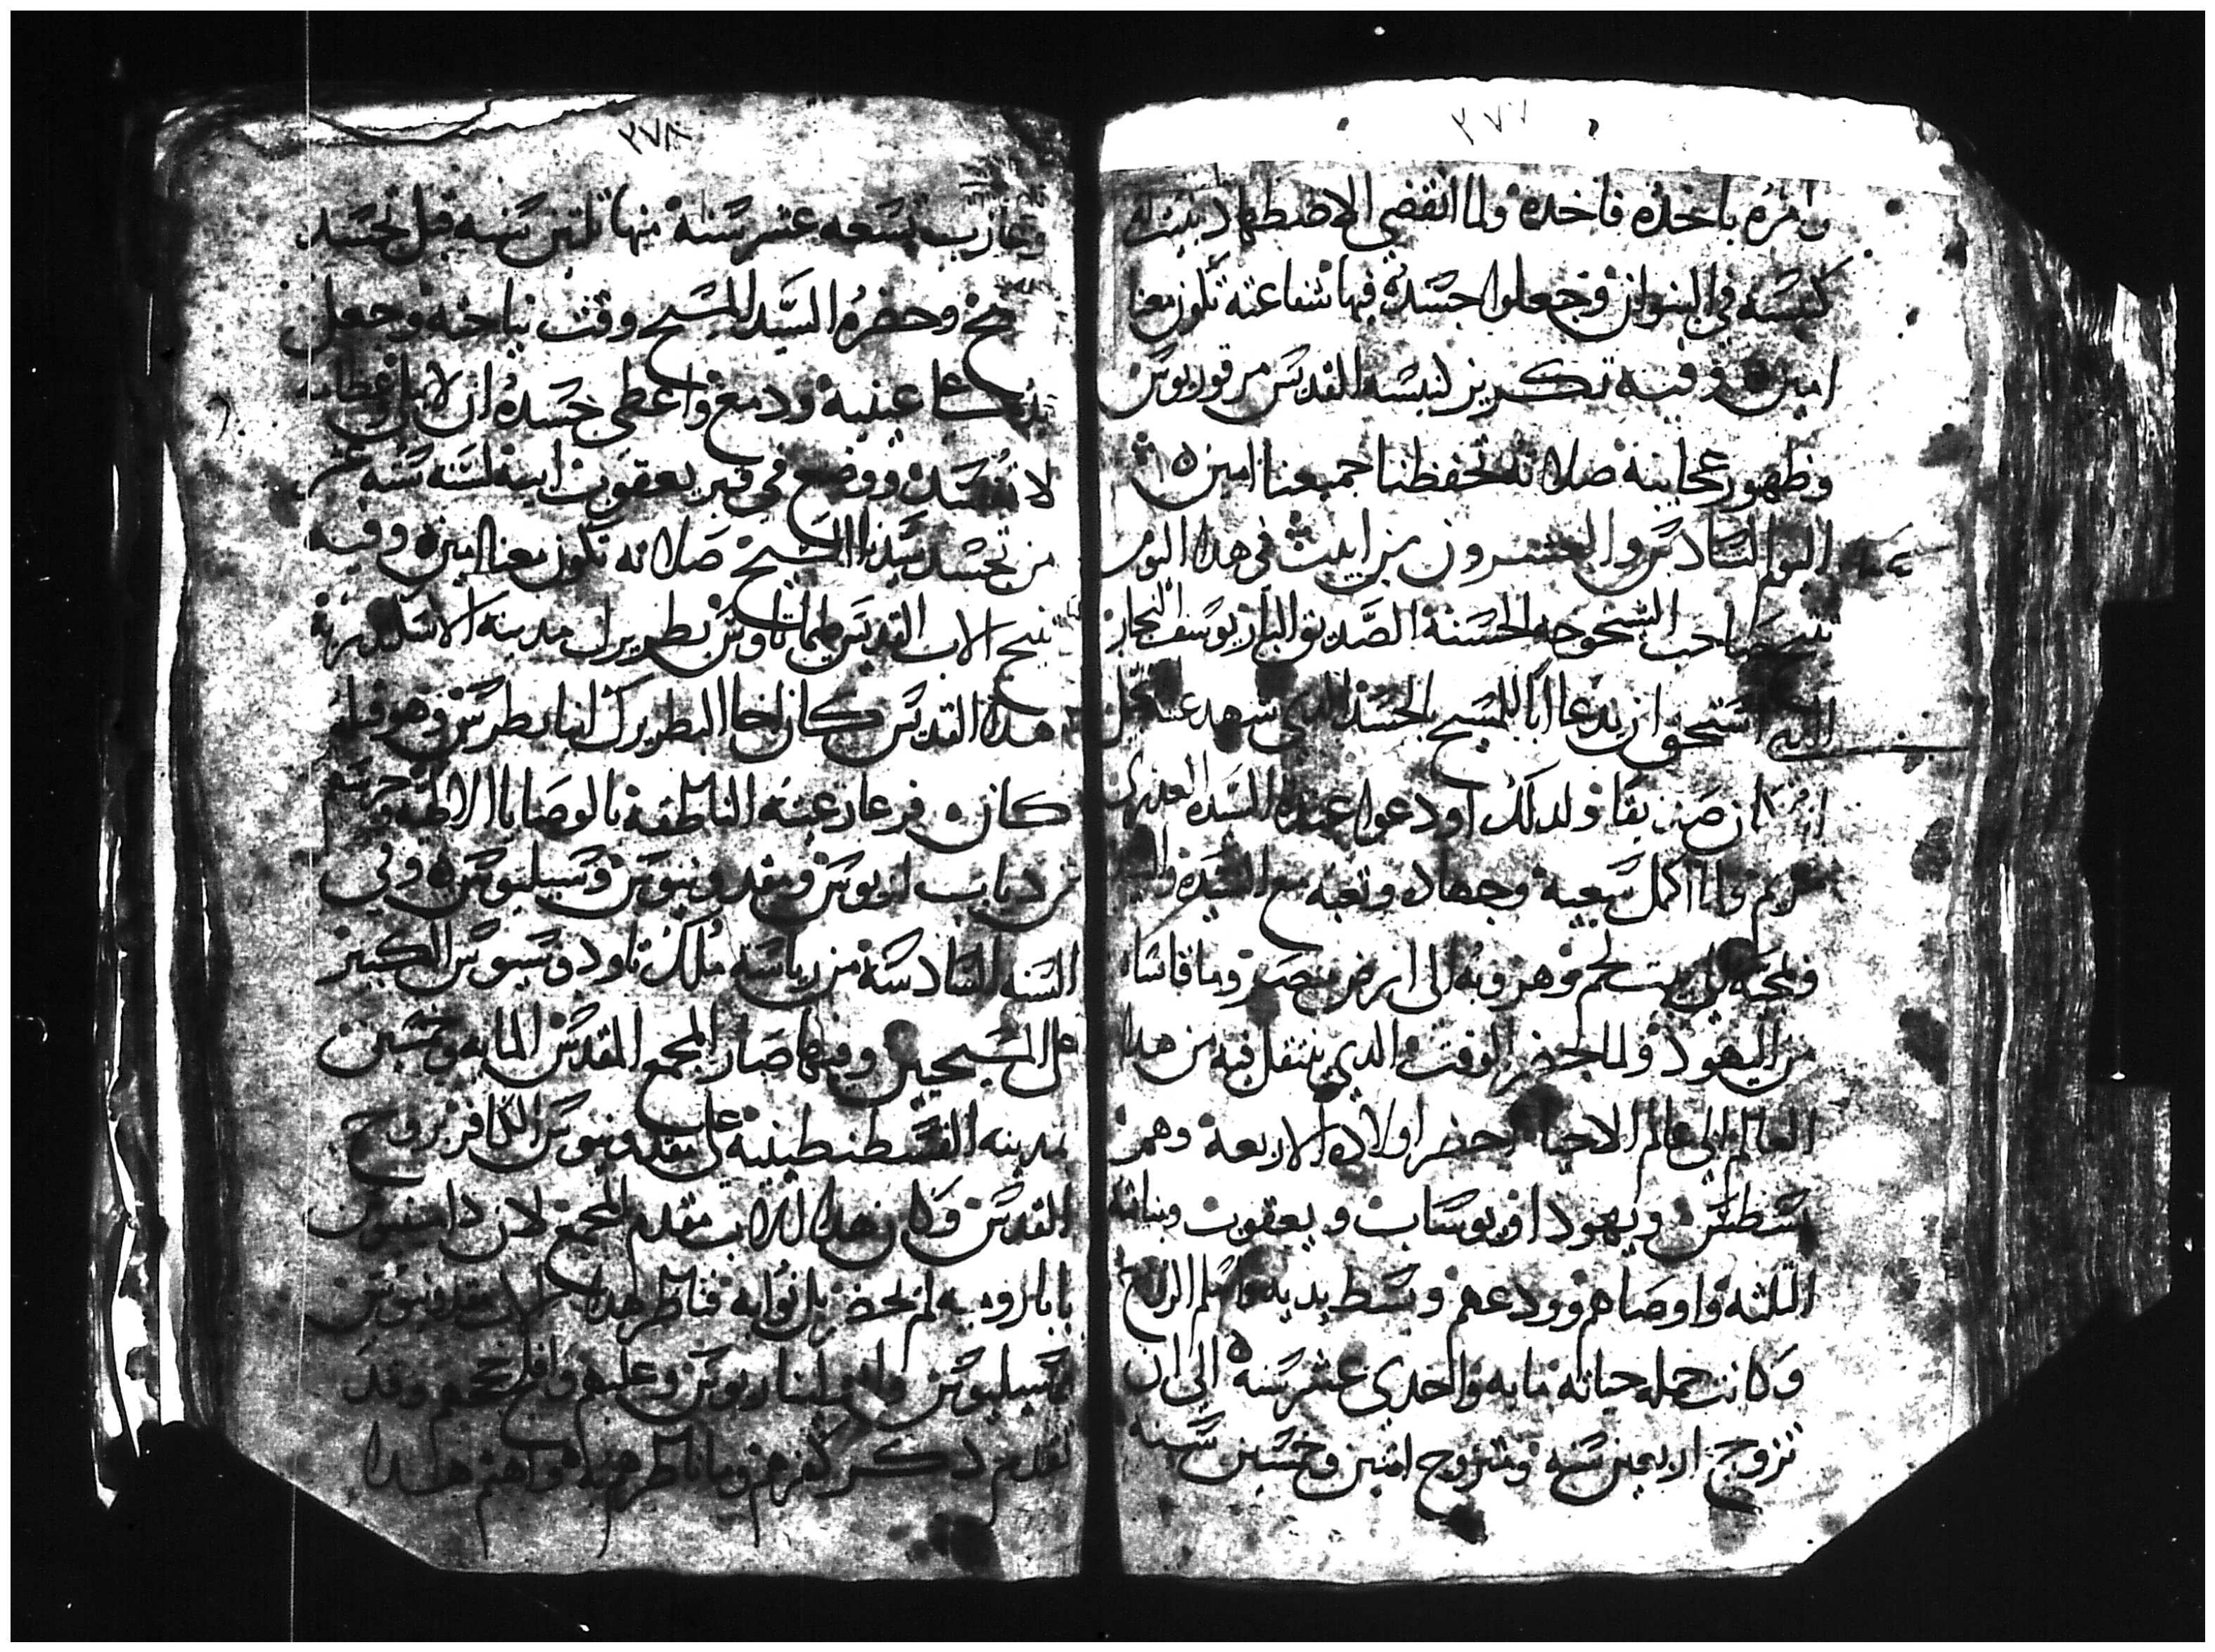 ٣٧٧
وامره باخذه فاخذه ولما انقضى الاضطهاد بنيت له
كنيسه في البنوان وجعلوا جسده فيها شفاعته تكون معنا
امين وفيه تكريز كنيسه القديس مرقوريوس
وظهور عجايبه صلاته تحفظنا جميعنا امين
اليوم السادس والعشرون من ابيب في هذا اليوم
تنيح صاحب الشيخوخه الحسنة الصديق البار يوسف النجار
الذي استحق ان يدعا ابا للمسيح بالجسد الدي شهد عنه
انه كان صديقا ولدلك اودعوا عنده السيده العذرى
مريم ولما اكمل سعيه وجهاده وتعبه مع السيده
ومجيه الى بيت لحم وهروبه الى ارض مصر وما قاساه
من اليهود ولما حضر الوقت الدي ينتقل فيه من هدا
العالم الى عالم الاحيا احضر اولاده الاربعة وهم
سطس ويهودا ويوساب ويعقوب وبناته
التلته واوصاهم وودعهم وبسط يديه واسلم الروح
وكانت جمله حياته مايه واحدى عشر سنه الى ان
تزوج اربعين سنه وتزوج اتنين وخمسين سنه
٣٧٨
وعازب تسعه عشر سنة منها تلتين سنه قبل تجسد
وحضره السيد المسيح وقت نياحته وجعل
يده على عينيه ودمع واعطى جسده ان لا
لا تفسد ووضع في قبر يعقوب ابيه لسته سنه عشر
من تجسد سيدنا المسيح صلاته تكون معنا امين وفيه
تنيح الاب القديس طيماتاوس بطريرك مدينه الاسكندرية
هدا القديس كان اخا البطريرك انبا بطرس وهو قبله
كان فرعا رعيته الناطقة بالوصايا الالهيه وحرسهم
من دياب اريوس ومقدونيوس وسبليوس وفي
السنه السادسه من رياسه ملك تاودوسيوس الكبير
على المسيحيين وفيها صار المجمع المقدس المايه وخمسين
بمدينه القسطنطينية على مقدونيوس الكافر بروح
القدس وكان هدا الاب مقدم المجمع لان داسيوس
بابا روميه لم يحضر بل نوابه فناظر هدا الاب مقدونيوس
وسبليوس وابوليناريوس وغلبهم وافلج حججهم وقد
تقدم دكر كفرهم وما ناظرهم به واهتم هدا